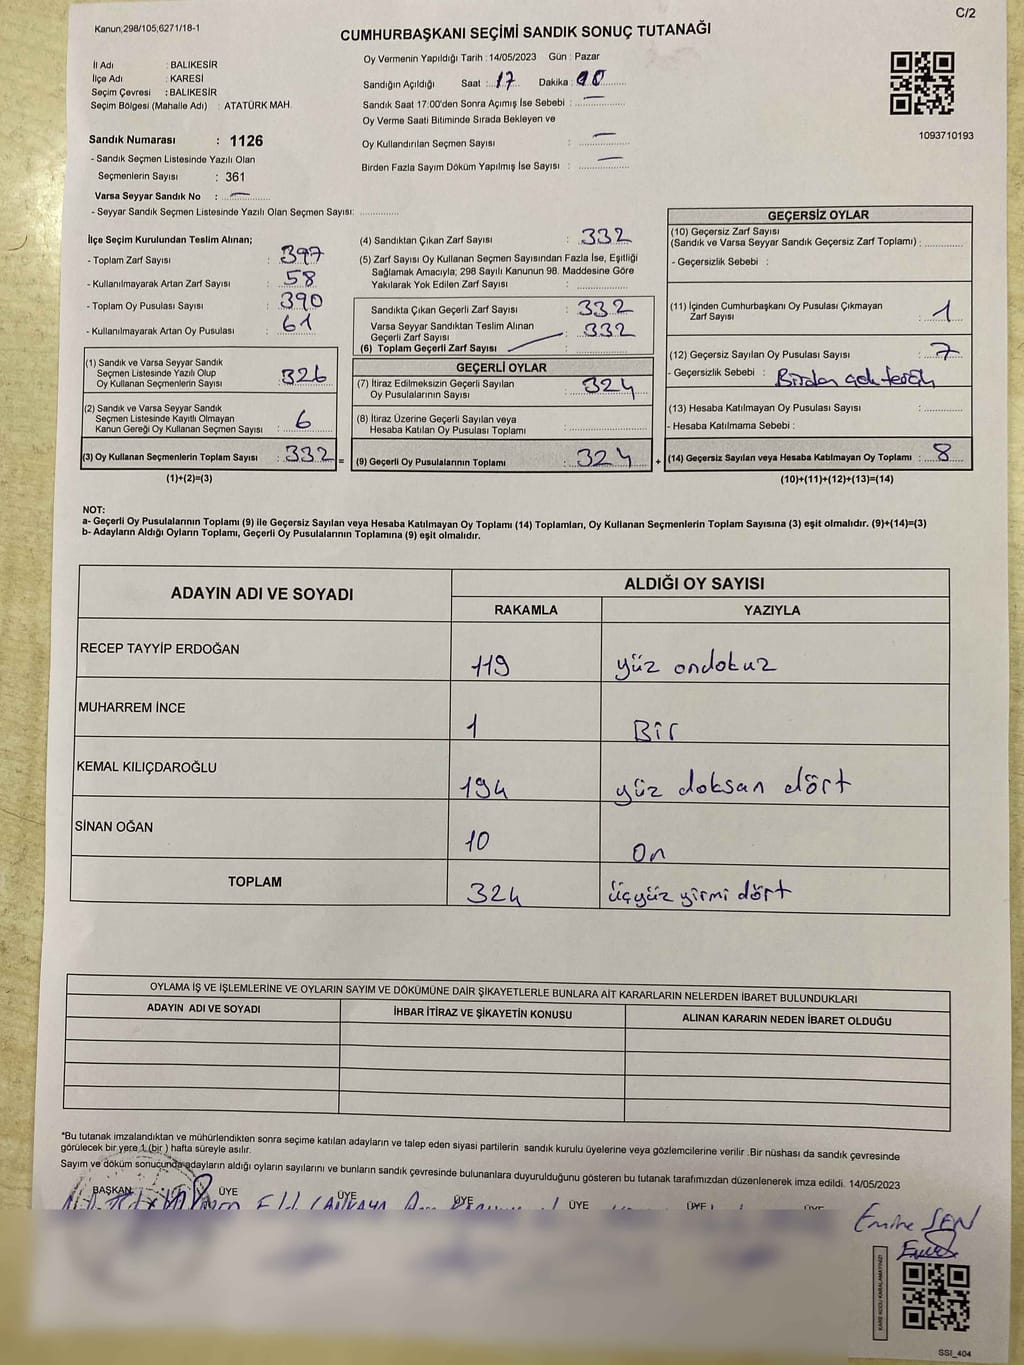 C/2
Kanun;298/105;6271/18-1
CUMHURBAŞKANI SEÇİMİ SANDIK SONUÇ TUTANAĞI
İl Adı : BALIKESİR
İlçe Adı : KARESİ
Seçim Çevresi : BALIKESİR
Seçim Bölgesi (Mahalle Adı) : ATATÜRK MAH.
Sandık Numarası : 1126
- Sandık Seçmen Listesinde Yazılı Olan
Seçmenlerin Sayısı : 361
Varsa Seyyar Sandık No : —
- Seyyar Sandık Seçmen Listesinde Yazılı Olan Seçmen Sayısı: ............
Oy Vermenin Yapıldığı Tarih : 14/05/2023 Gün : Pazar
Sandığın Açıldığı Saat : 17 Dakika : 00
Sandık Saat 17:00'den Sonra Açımış İse Sebebi : —
Oy Verme Saati Bitiminde Sırada Bekleyen ve
Oy Kullandırılan Seçmen Sayısı : —
Birden Fazla Sayım Döküm Yapılmış İse Sayısı : —
1093710193
İlçe Seçim Kurulundan Teslim Alınan;
- Toplam Zarf Sayısı : 397
- Kullanılmayarak Artan Zarf Sayısı : 58
- Toplam Oy Pusulası Sayısı : 390
- Kullanılmayarak Artan Oy Pusulası : 61
(1) Sandık ve Varsa Seyyar Sandık
Seçmen Listesinde Yazılı Olup
Oy Kullanan Seçmenlerin Sayısı : 326
(2) Sandık ve Varsa Seyyar Sandık
Seçmen Listesinde Kayıtlı Olmayan
Kanun Gereği Oy Kullanan Seçmen Sayısı : 6
(3) Oy Kullanan Seçmenlerin Toplam Sayısı : 332 =
(1)+(2)=(3)
(4) Sandıktan Çıkan Zarf Sayısı : 332
(5) Zarf Sayısı Oy Kullanan Seçmen Sayısından Fazla İse, Eşitliği
Sağlamak Amacıyla; 298 Sayılı Kanunun 98. Maddesine Göre
Yakılarak Yok Edilen Zarf Sayısı : ............
Sandıkta Çıkan Geçerli Zarf Sayısı : 332
Varsa Seyyar Sandıktan Teslim Alınan
Geçerli Zarf Sayısı : 332
(6) Toplam Geçerli Zarf Sayısı : ............
GEÇERLİ OYLAR
(7) İtiraz Edilmeksizin Geçerli Sayılan
Oy Pusulalarının Sayısı : 324
(8) İtiraz Üzerine Geçerli Sayılan veya
Hesaba Katılan Oy Pusulası Toplamı : ............
(9) Geçerli Oy Pusulalarının Toplamı : 324 +
GEÇERSİZ OYLAR
(10) Geçersiz Zarf Sayısı
(Sandık ve Varsa Seyyar Sandık Geçersiz Zarf Toplamı) : ............
- Geçersizlik Sebebi :
(11) İçinden Cumhurbaşkanı Oy Pusulası Çıkmayan
Zarf Sayısı : 1
(12) Geçersiz Sayılan Oy Pusulası Sayısı : 7
- Geçersizlik Sebebi : Birden çok tercih
(13) Hesaba Katılmayan Oy Pusulası Sayısı : ............
- Hesaba Katılmama Sebebi :
(14) Geçersiz Sayılan veya Hesaba Katılmayan Oy Toplamı : 8
(10)+(11)+(12)+(13)=(14)
NOT:
a- Geçerli Oy Pusulalarının Toplamı (9) ile Geçersiz Sayılan veya Hesaba Katılmayan Oy Toplamı (14) Toplamları, Oy Kullanan Seçmenlerin Toplam Sayısına (3) eşit olmalıdır. (9)+(14)=(3)
b- Adayların Aldığı Oyların Toplamı, Geçerli Oy Pusulalarının Toplamına (9) eşit olmalıdır.
ADAYIN ADI VE SOYADI
ALDIĞI OY SAYISI
RAKAMLA YAZIYLA
RECEP TAYYİP ERDOĞAN 119 yüz ondokuz
MUHARREM İNCE 1 Bir
KEMAL KILIÇDAROĞLU 194 yüz doksan dört
SİNAN OĞAN 10 On
TOPLAM 324 üçyüz yirmi dört
OYLAMA İŞ VE İŞLEMLERİNE VE OYLARIN SAYIM VE DÖKÜMÜNE DAİR ŞİKAYETLERLE BUNLARA AİT KARARLARIN NELERDEN İBARET BULUNDUKLARI
ADAYIN ADI VE SOYADI İHBAR İTİRAZ VE ŞİKAYETİN KONUSU ALINAN KARARIN NEDEN İBARET OLDUĞU
*Bu tutanak imzalandıktan ve mühürlendikten sonra seçime katılan adayların ve talep eden siyasi partilerin sandık kurulu üyelerine veya gözlemcilerine verilir .Bir nüshası da sandık çevresinde
görülecek bir yere 1 (bir ) hafta süreyle asılır.
Sayım ve döküm sonucunda adayların aldığı oyların sayılarını ve bunların sandık çevresinde bulunanlara duyurulduğunu gösteren bu tutanak tarafımızdan düzenlenerek imza edildi. 14/05/2023
BAŞKAN ÜYE ÜYE ÜYE ÜYE ÜYE ÜYE
Emine ŞEN
KARE KODU KARALAMAYINIZ!
SSI_404